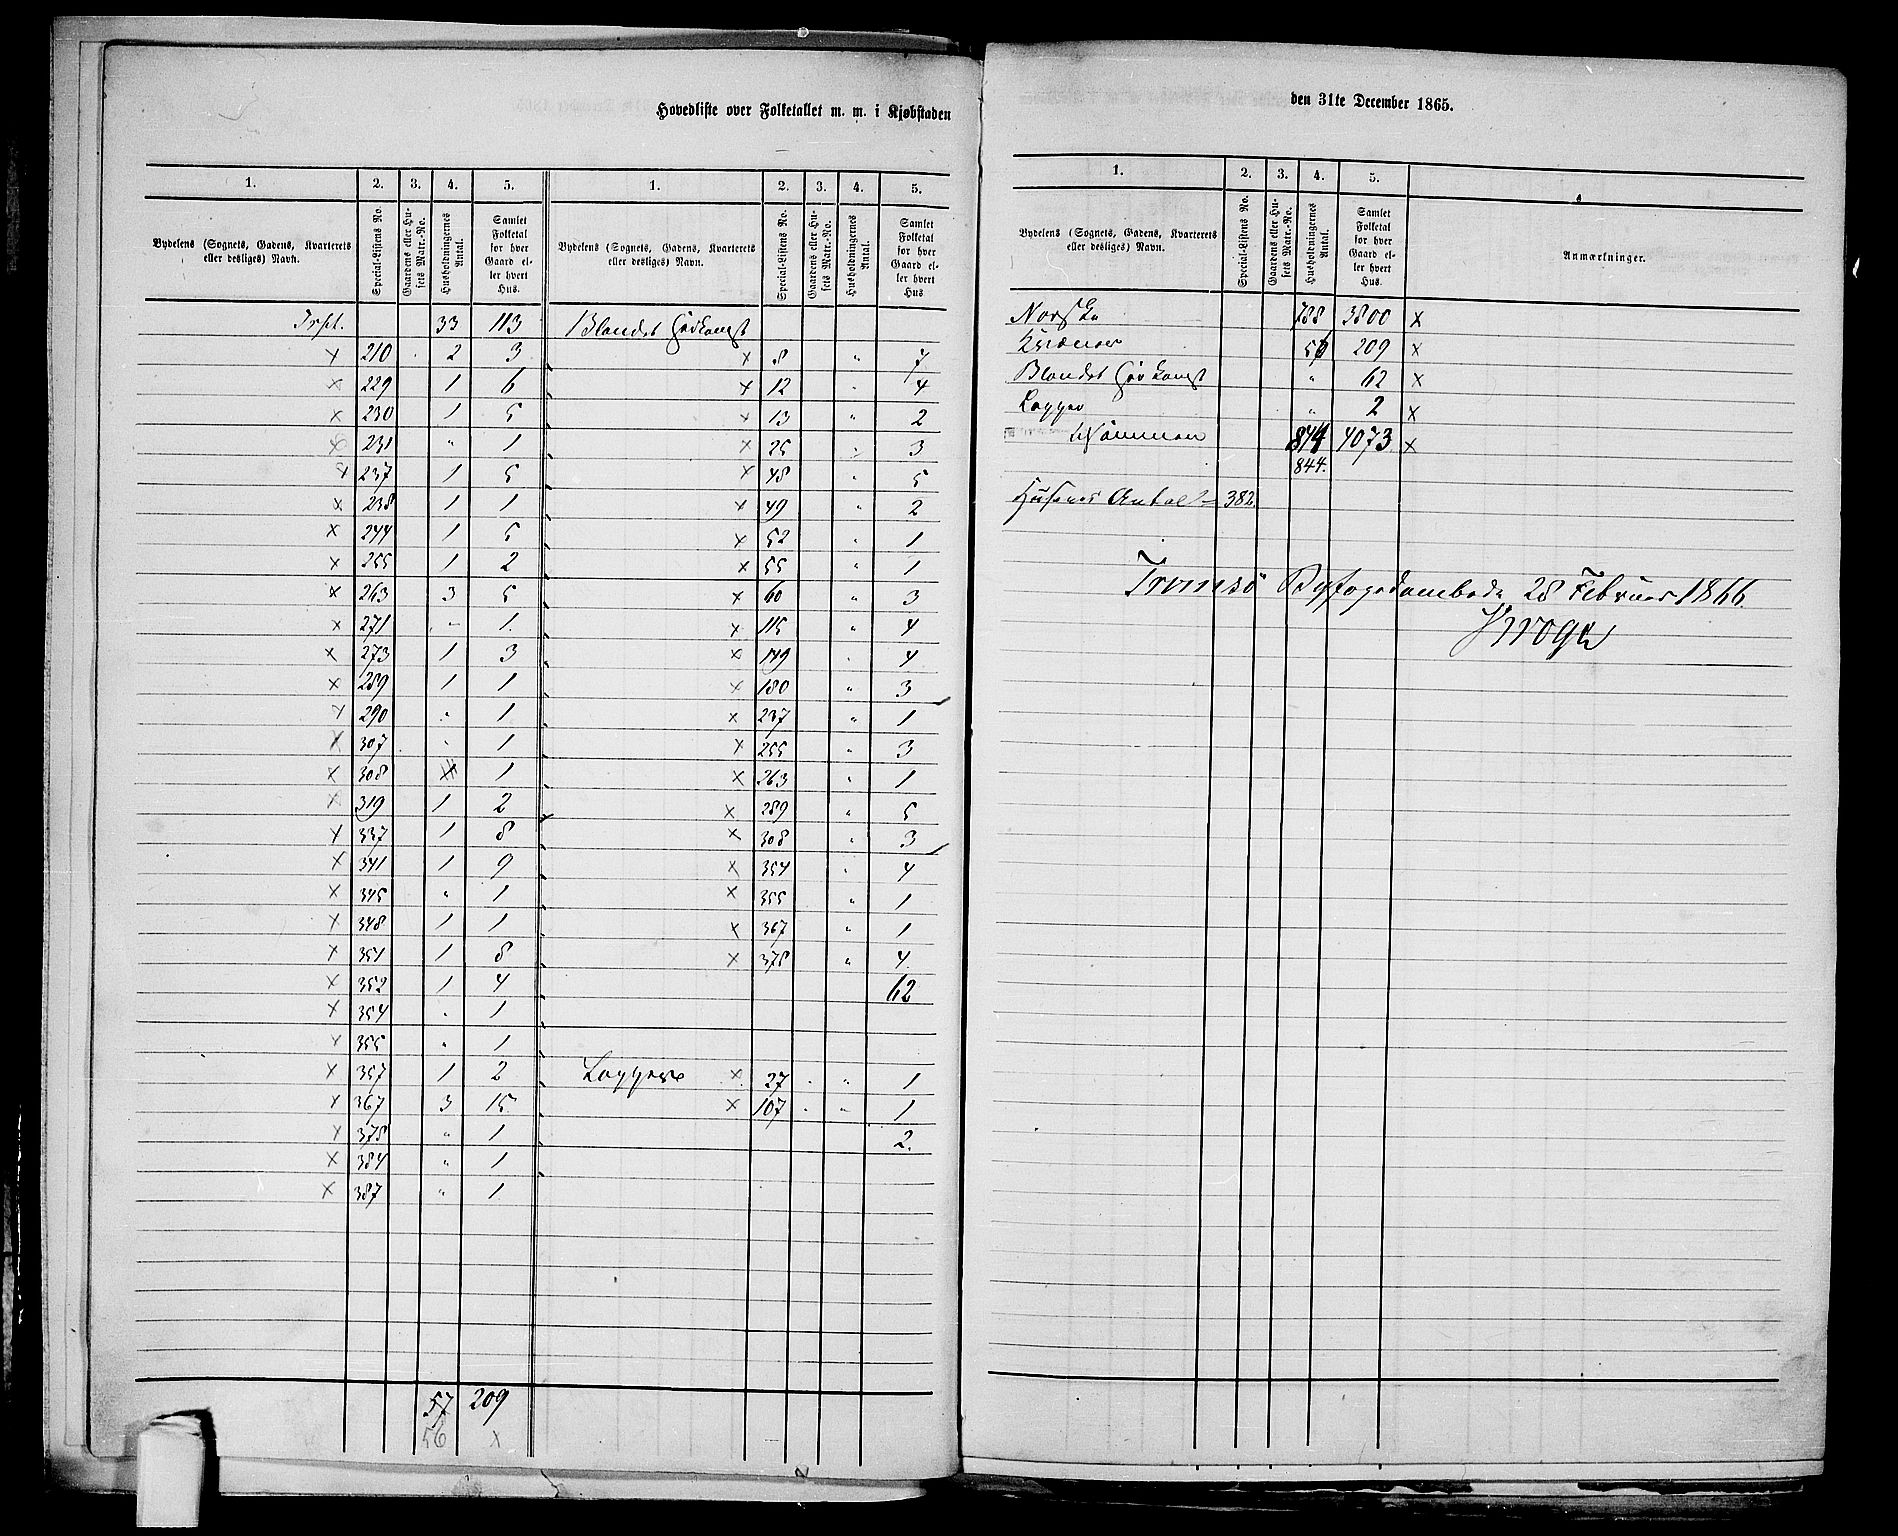 Hovedliste over Folketallet m. m. i Kjøbstaden
1. 2. 3. 4. 5. 1. 2. 3. 4. 5.
Bydelens (Sognets, Gadens, Kvarterets eller desliges) Navn. Special-Listens No. Gaardens eller Husets Matr.-No. Husholdningernes Antal. Samlet Folketal for hver Gaard eller hvert Hus. Bydelens (Sognets, Gadens, Kvarterets eller desliges) Navn. Special-Listens No. Gaardens eller Husets Matr.-No. Husholdningernes Antal. Samlet Folketal for hver Gaard eller hvert Hus
Trspt. 33 113 Blandet Herkomst
x 210 2 3 x 8 " 7
x 229 1 6 x 12 " 4
x 230 1 5 x 13 " 2
x 231 " 1 x 25 " 3
x 237 1 5 x 48 " 5
x 238 1 1 x 49 " 2
x 244 1 5 x 52 " 1
x 255 1 2 x 55 " 1
x 263 3 5 x 60 " 3
x 271 " 1 x 115 " 4
x 273 1 3 x 149 " 4
x 289 1 1 x 180 " 3
x 290 " 1 x 237 " 1
x 307 " 1 x 255 " 3
x 308 1 x 263 " 1
x 319 1 2 x 289 5
x 337 1 8 x 308 " 3
x 341 1 9 x 354 " 4
x 345 " 1 x 355 " 1
x 348 1 1 x 367 " 1
x 351 1 8 x 378 " 4
x 352 1 4 62
x 354 " 1
x 355 " 1
x 357 1 2 Lapper x 27 " 1
x 367 3 15 x 107 " 1
x 378 " 1 2.
x 384 " 1
x 387 " 1
57 209
56 x
den 31te December 1865.
1. 2. 3. 4. 5.
Bydelens (Sognets, Gadens, Kvarterets eller desliges) Navn. Special-Listens No. Gaardens eller Husets Matr.-No. Husholdningernes Antal. Samlet Folketal for hver Gaard eller hvert Hus. Anmærkninger.
Norske 788 3800 x
Kvæner 56 209 x
Blandet Herkomst " 62 x
Lapper " 2 x
Tilsammen 844 4073 x
844.
Husenes Antal 382.
Tromsö Byfogedembede 28 Februar 1866.